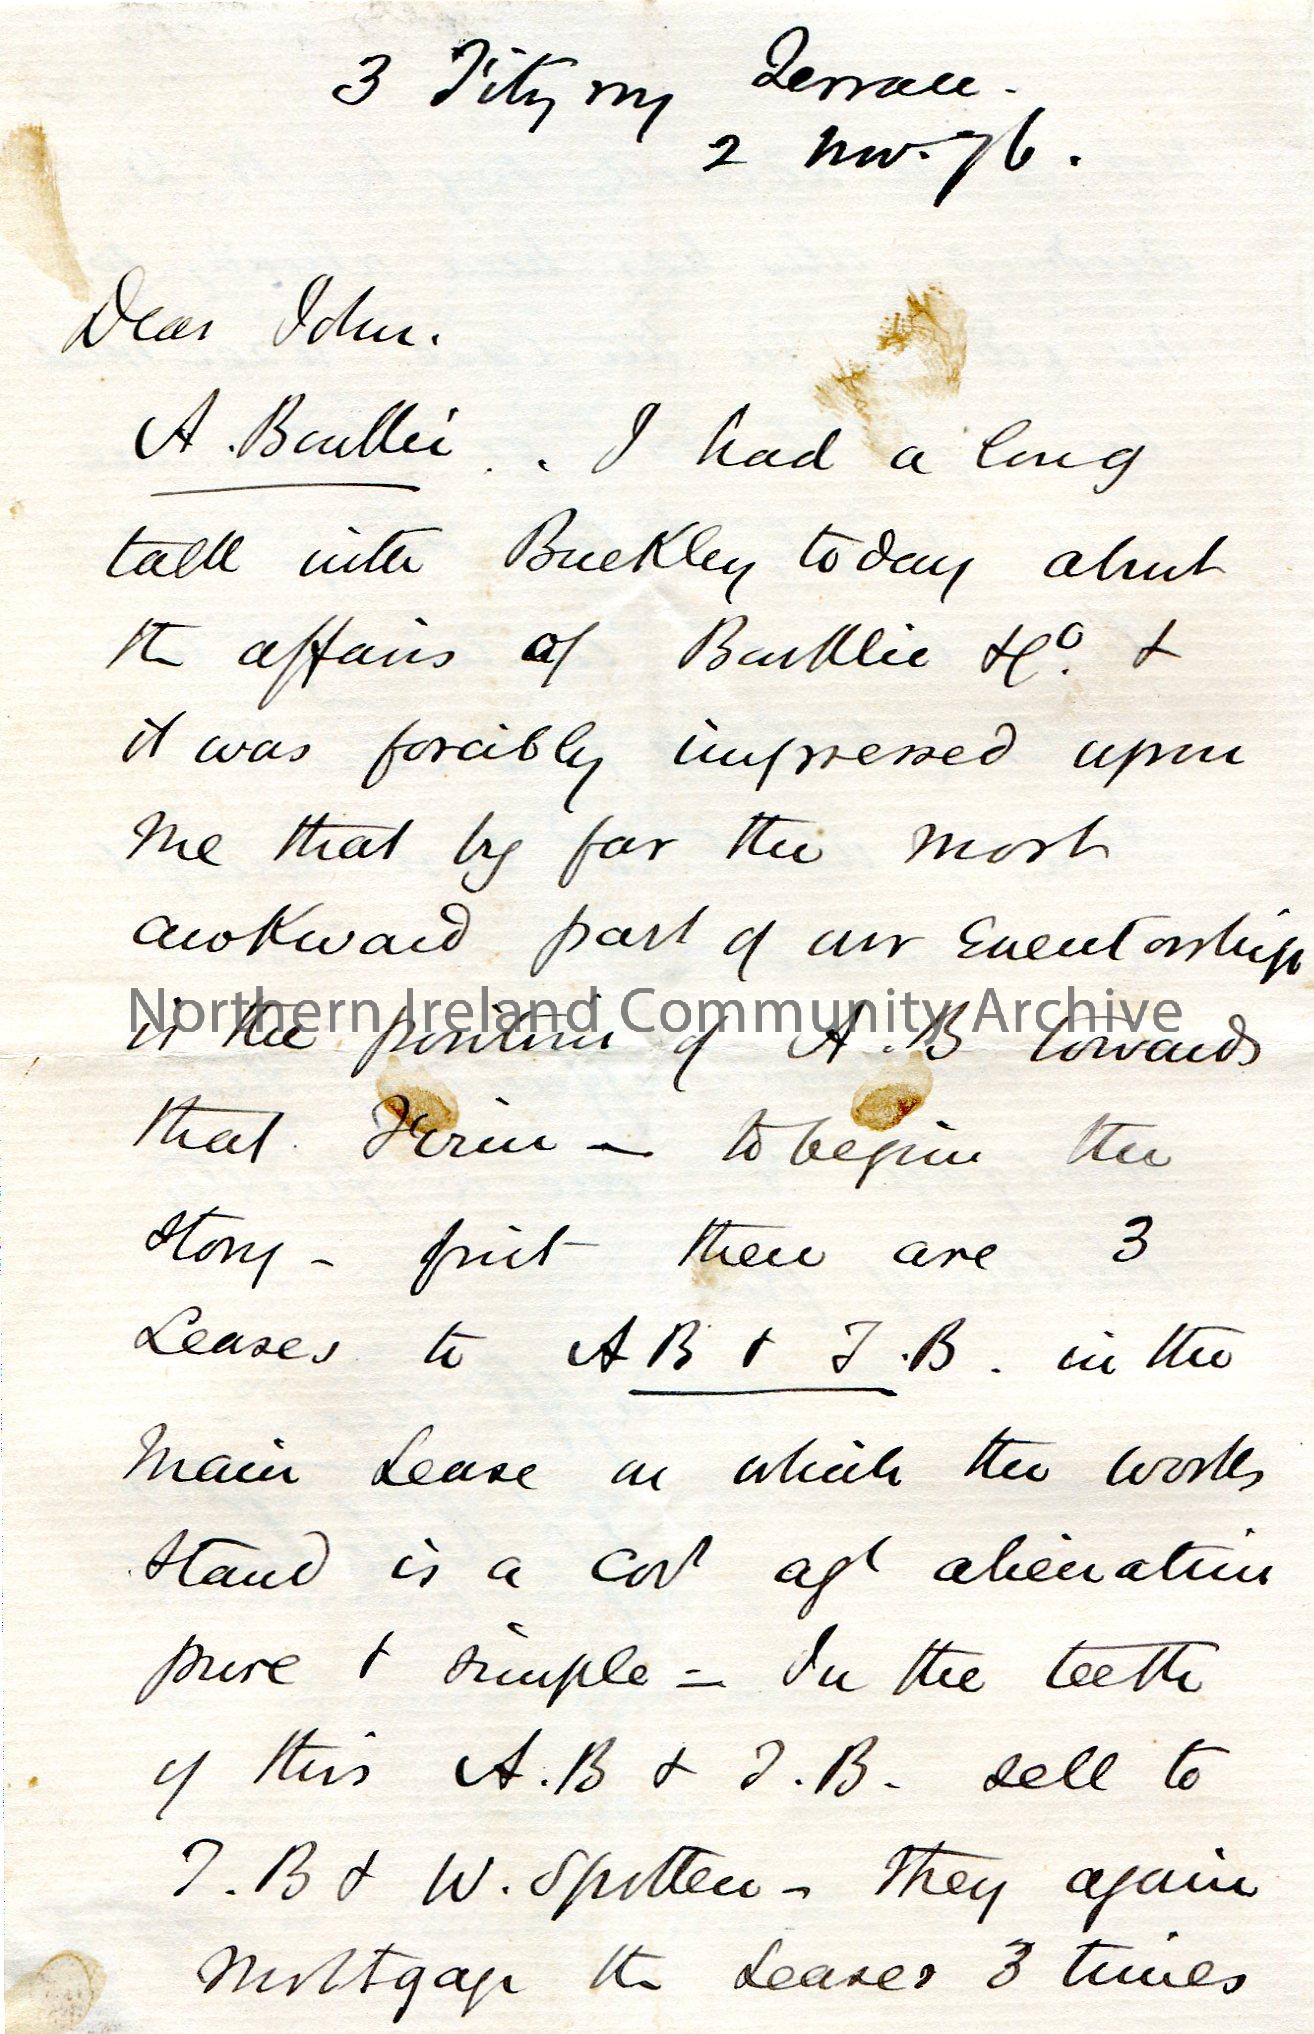 3 Fitzroy Terrace.
2 Nov. 76.
Dear John.
A. Barklie . . I had a long
talk with Buckley today about
the affairs of Barklie & Co. &
it was forcibly impressed upon
me that by far the most
awkward part of our Executorship
Northern Ireland Community Archive
is the position of A.B towards
that Firm — to begin the
story – first there are 3
Leases to A B & T.B. in the
Main Lease on which the works
stand is a Covt agt alienation
pure & simple – In the teeth
of this A.B & T.B. sell to
T.B & W. Spotten – They again
Mortgage the Leases 3 times